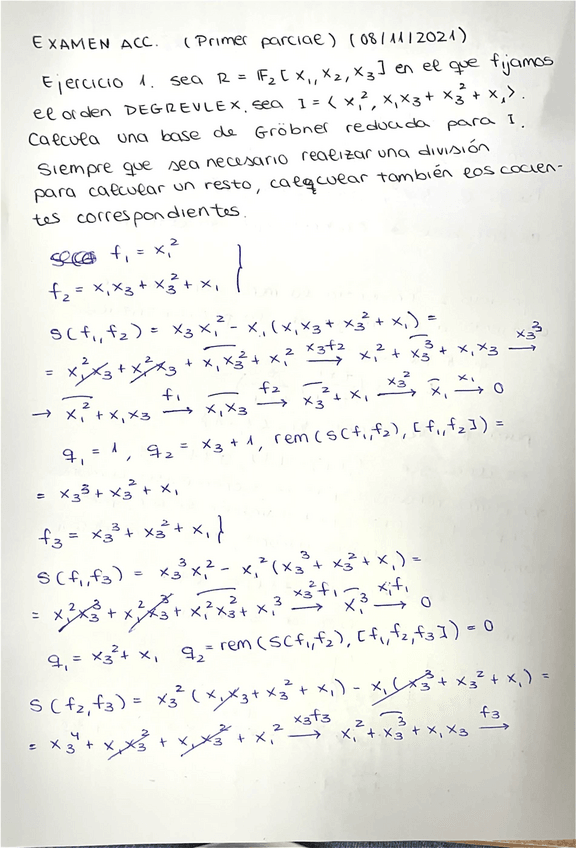 EXAMEN ACC. (Primer parcial) (08/11/2021)
Ejercicio 1. sea R = F₂[x₁, x₂, x₃] en el que fijamos
el orden DEGREVLEX. sea I = ⟨x₁², x₁x₃ + x₃² + x₁⟩.
Calcula una base de Gröbner reducida para I.
Siempre que sea necesario realizar una división
para calcular un resto, calcular también los cocien-
tes correspondientes.
f₁ = x₁²
f₂ = x₁x₃ + x₃² + x₁
S(f₁, f₂) = x₃x₁² - x₁(x₁x₃ + x₃² + x₁) =
= x₁²x₃ + x₁²x₃ + x₁x₃² + x₁² →(x₃f₂) x₁² + x₃³ + x₁x₃ →(x₃³)
→ x₁² + x₁x₃ →(f₁) x₁x₃ →(f₂) x₃² + x₁ →(x₃²) x₁ →(x₁) 0
q₁ = 1, q₂ = x₃ + 1, rem(S(f₁, f₂), [f₁, f₂]) =
= x₃³ + x₃² + x₁
f₃ = x₃³ + x₃² + x₁}
S(f₁, f₃) = x₃³x₁² - x₁²(x₃³ + x₃² + x₁) =
= x₁²x₃³ + x₁²x₃³ + x₁²x₃² + x₁³ →(x₃²f₁) x₁³ →(x₁f₁) 0
q₁ = x₃² + x₁ q₂ = rem(S(f₁, f₂), [f₁, f₂, f₃]) = 0
S(f₂, f₃) = x₃²(x₁x₃ + x₃² + x₁) - x₁(x₃³ + x₃² + x₁) =
= x₃⁴ + x₁x₃² + x₁x₃² + x₁² →(x₃f₃) x₁² + x₃³ + x₁x₃ →(f₃)